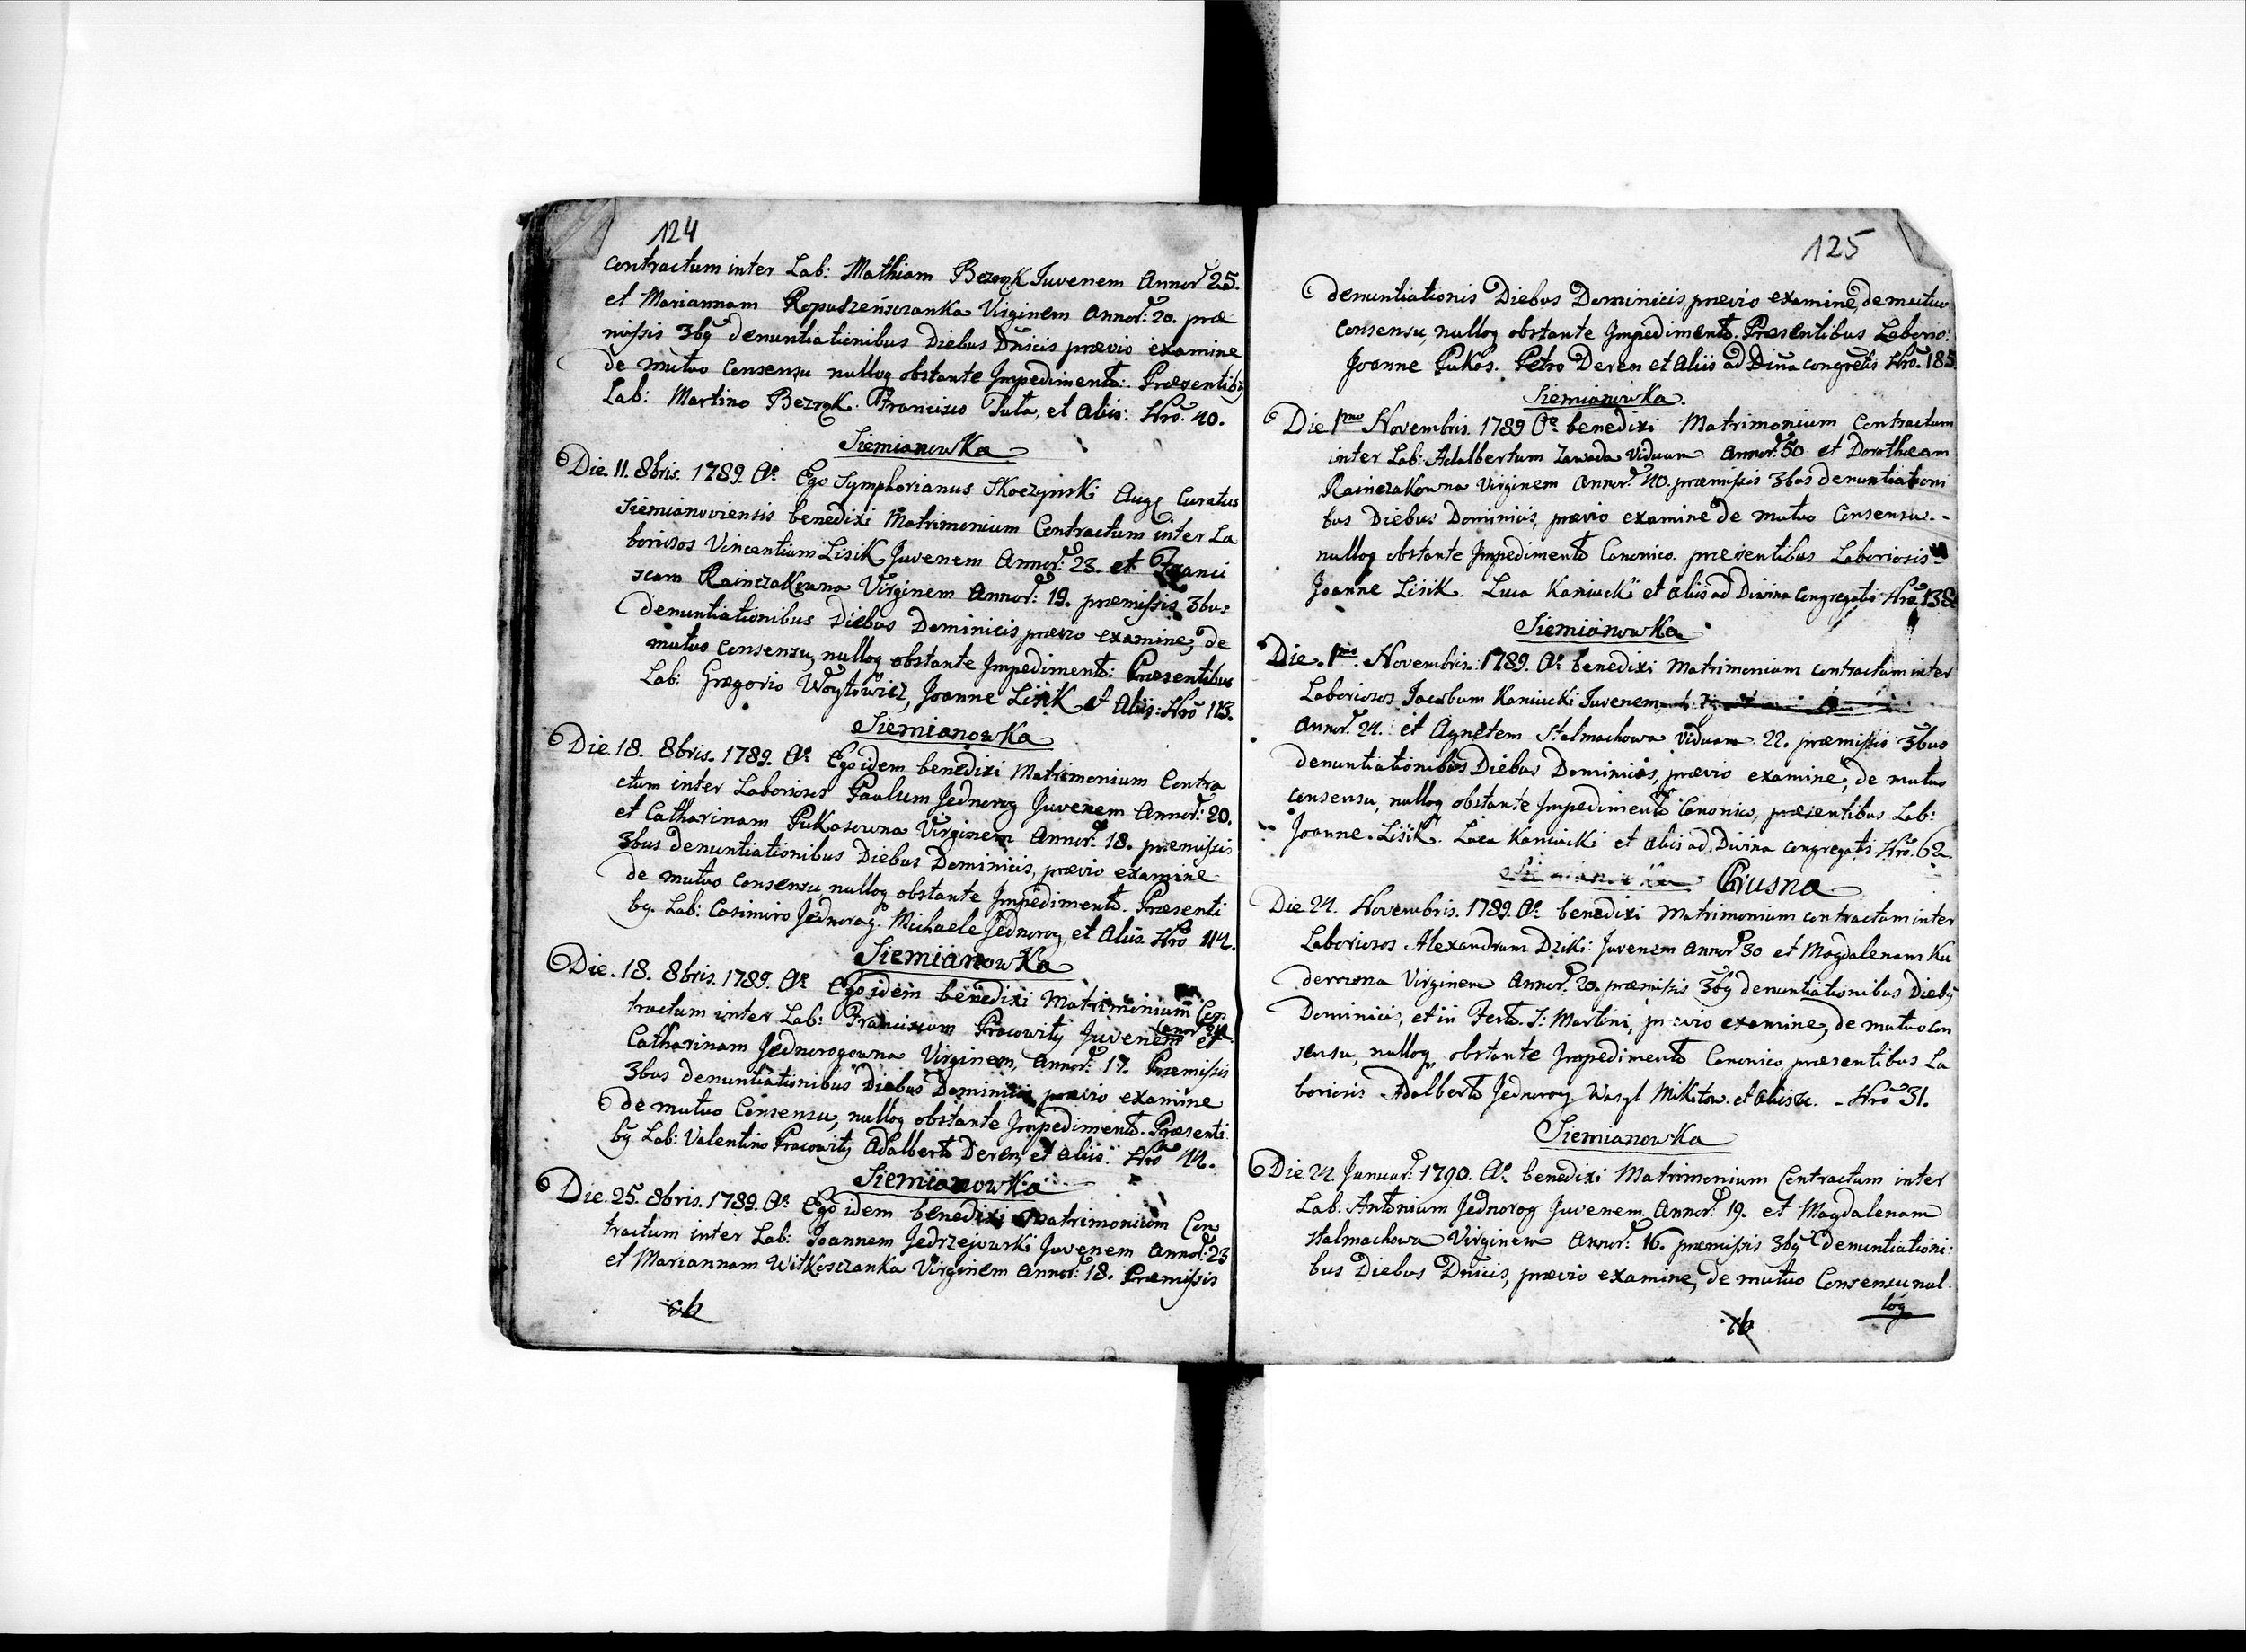 124
contractum inter Lab: Mathiam Bezryk Juvenem Annor 25.
et Mariannam Ropuszeńsczanka Virginem Annor: 20. præ
missis 3bq denuntiationibus Diebus Dnicis prævio examine
de mutuo Consensu nulloq obstante Impedimento: Præsentibq
Lab: Martino Bezryk. Francisco Tuta, et Aliis: Nro. 40.
Siemianowka
Die. 11. 8bris. 1789. Ao. Ego Symphorianus Skoczynski Aug Curatus
Siemianoviensis benedixi Matrimonium Contractum inter La
boriosos Vincentium Lisik Juvenem Annor: 23. et Franci
scam Rainczakowna Virginem Annor: 19. præmissis 3bus
denuntiationibus Diebus Dominicis prævio examine, de
mutuo Consensu, nulloq obstante Impedimento: Præsentibus
Lab: Gregorio Woytowicz, Joanne Lisik et Aliis: Nro 113.
Siemianowka
Die. 18. 8bris. 1789. Ao. Ego idem benedixi Matrimonium Contra
ctum inter Laboriosos Paulum Jednorog Juvenem Annor: 20.
et Catharinam Pukasowna Virginem Annor: 18. præmissis
3bus denuntiationibus Diebus Dominicis, prævio examine
de mutuo Consensu, nulloq obstante Impedimento. Præsenti
bq. Lab: Casimiro Jednorog. Michaele Jednorog, et Aliis. Nro 114.
Siemianowka
Die. 18. 8bris. 1789. Ao. Ego idem benedixi Matrimonium Con
tractum inter Lab: Franciscum Pracowity Juvenem et
Catharinam Jednorogowna Virginem, Annor: 17. Præmissis
3bus denuntiationibus Diebus Dominicis prævio examine
de mutuo Consensu, nulloq obstante Impedimento. Præsenti
bq Lab: Valentino Pracowity Adalberto Deren, et Aliis. Nro 44.
Siemianowka
Die. 25. 8bris. 1789. Ao. Ego idem benedixi Matrimonium Con
tractum inter Lab: Joannem Jedrzejowski Juvenem Annor: 23
et Mariannam Witkosczanka Virginem Annor: 18. Præmissis
125
denuntiationis Diebus Dominicis prævio examine, de mutuo
Consensu, nulloq obstante Impedimento. Præsentibus Laborio:
Joanne Pukas. Petro Deren et Aliis ad Dina congretis Nro. 185
Siemianowka.
Die 1mo Novembris. 1789 Ao. benedixi Matrimonium Contractum
inter Lab: Adalbertum Zawada Viduum Annor: 50 et Dorotheam
Rainczakowna Virginem Annor: 40. præmissis 3bus denuntiationi
bus Diebus Dominicis, prævio examine de mutuo Consensu. -
nulloq obstante Impedimento Canonico. præsentibus Laboriosis
Joanne Lisik. Luca Kaniucki et Aliis ad Divina Congregatis Nro 138
Siemianowka
Die. 1mo. Novembris. 1789. Ao. benedixi Matrimonium contractum inter
Laboriosos Jacobum Kaniucki Juvenem
Annor. 24. et Agnetem Stalmachowa Viduam 22. præmissis 3bus
denuntiationibus Diebus Dominicis, prævio examine, de mutuo
consensu, nulloq obstante Impedimento Canonico, præsentibus Lab:
Joanne. Lisik. Luca Kaniucki et Aliis ad Divina Congregatis. Nro. 62.
Siemianowka Chrusna
Die 24. Novembris. 1789. Ao. benedixi Matrimonium contractum inter
Laboriosos Alexandrum Dzik: Juvenem Annor 30 et Magdalenam Ku
derowna Virginem Annor. 20. præmissis 3bq denuntiationibus Diebq
Dominicis, et in Festo. S: Martini, prævio examine, de mutuo con
sensu, nulloq obstante Impedimento Canonico præsentibus La
boriosis Adalberto Jednorog. Wasyl Mikitow. et aliis - Nro 31.
Siemianowka
Die. 24. Januar: 1790. Ao. benedixi Matrimonium Contractum inter
Lab: Antonium Jednorog Juvenem Annor. 19. et Magdalenam
Stalmachowa Virginem Annor: 16. præmissis 3bq denuntiationi:
bus Diebus Dnicis, prævio examine, de mutuo Consensu, nul
loq